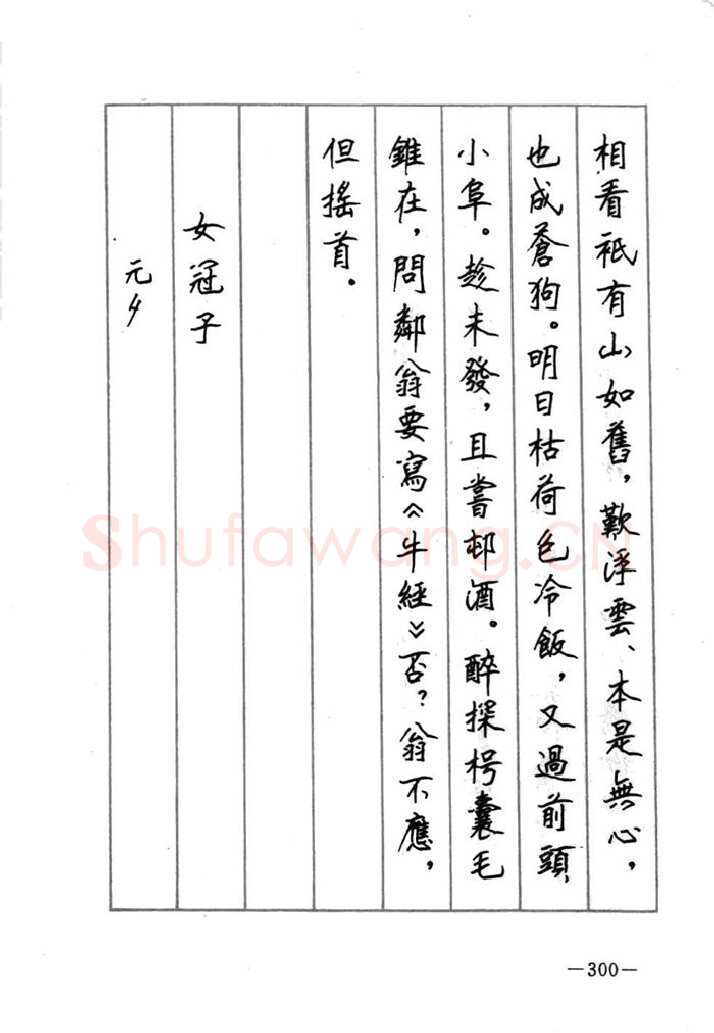 相看祇有山如舊，歎浮雲、本是無心，
也成蒼狗。明日枯荷包冷飯，又過前頭
小阜。趁未發，且嘗邨酒。醉探枵囊毛
錐在，問鄰翁要寫《牛經》否？翁不應，
但搖首。
女冠子
元夕
Shufawang.CN
—300—